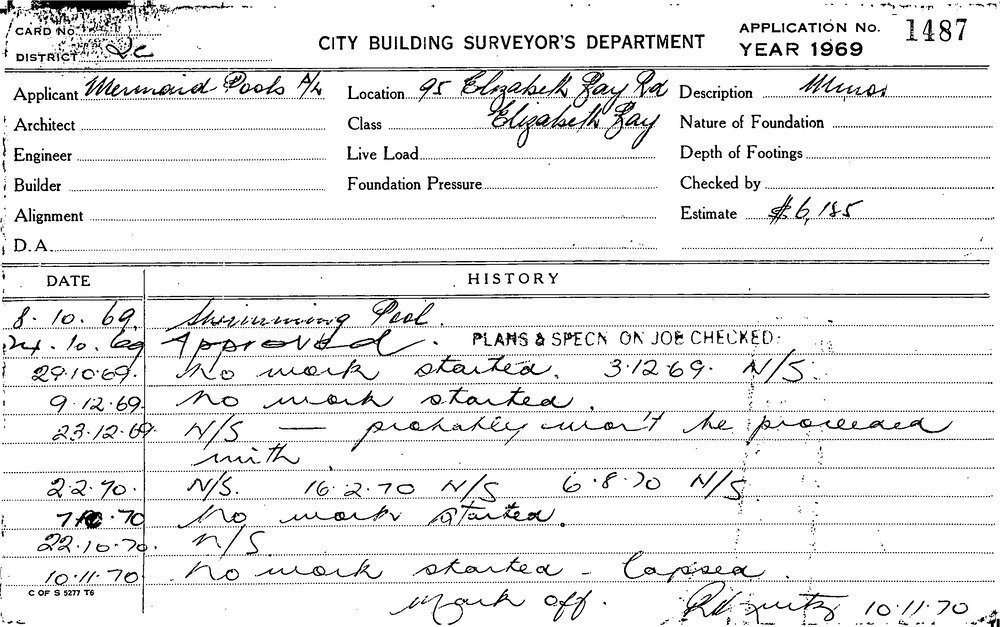 CARD No.
DISTRICT 2c
CITY BUILDING SURVEYOR'S DEPARTMENT
APPLICATION No. 1487
YEAR 1969
Applicant Mermaid Pools P/L Location 95 Elizabeth Bay Rd Description Minor
Architect Class Elizabeth Bay Nature of Foundation
Engineer Live Load Depth of Footings
Builder Foundation Pressure Checked by
Alignment Estimate $6,185
D.A.
DATE HISTORY
8.10.69 Swimming Pool.
24.10.69 Approved. PLANS & SPECN ON JOB CHECKED.
29.10.69. No work started. 3.12.69. N/S.
9.12.69. No work started.
23.12.69. N/S — probably won't be proceeded
with.
2.2.70. N/S. 16.2.70 N/S 6.8.70 N/S
70 No work started.
22.10.70. N/S.
10.11.70. No work started - lapsed.
C OF S 5277 T6
Mark off. 10.11.70